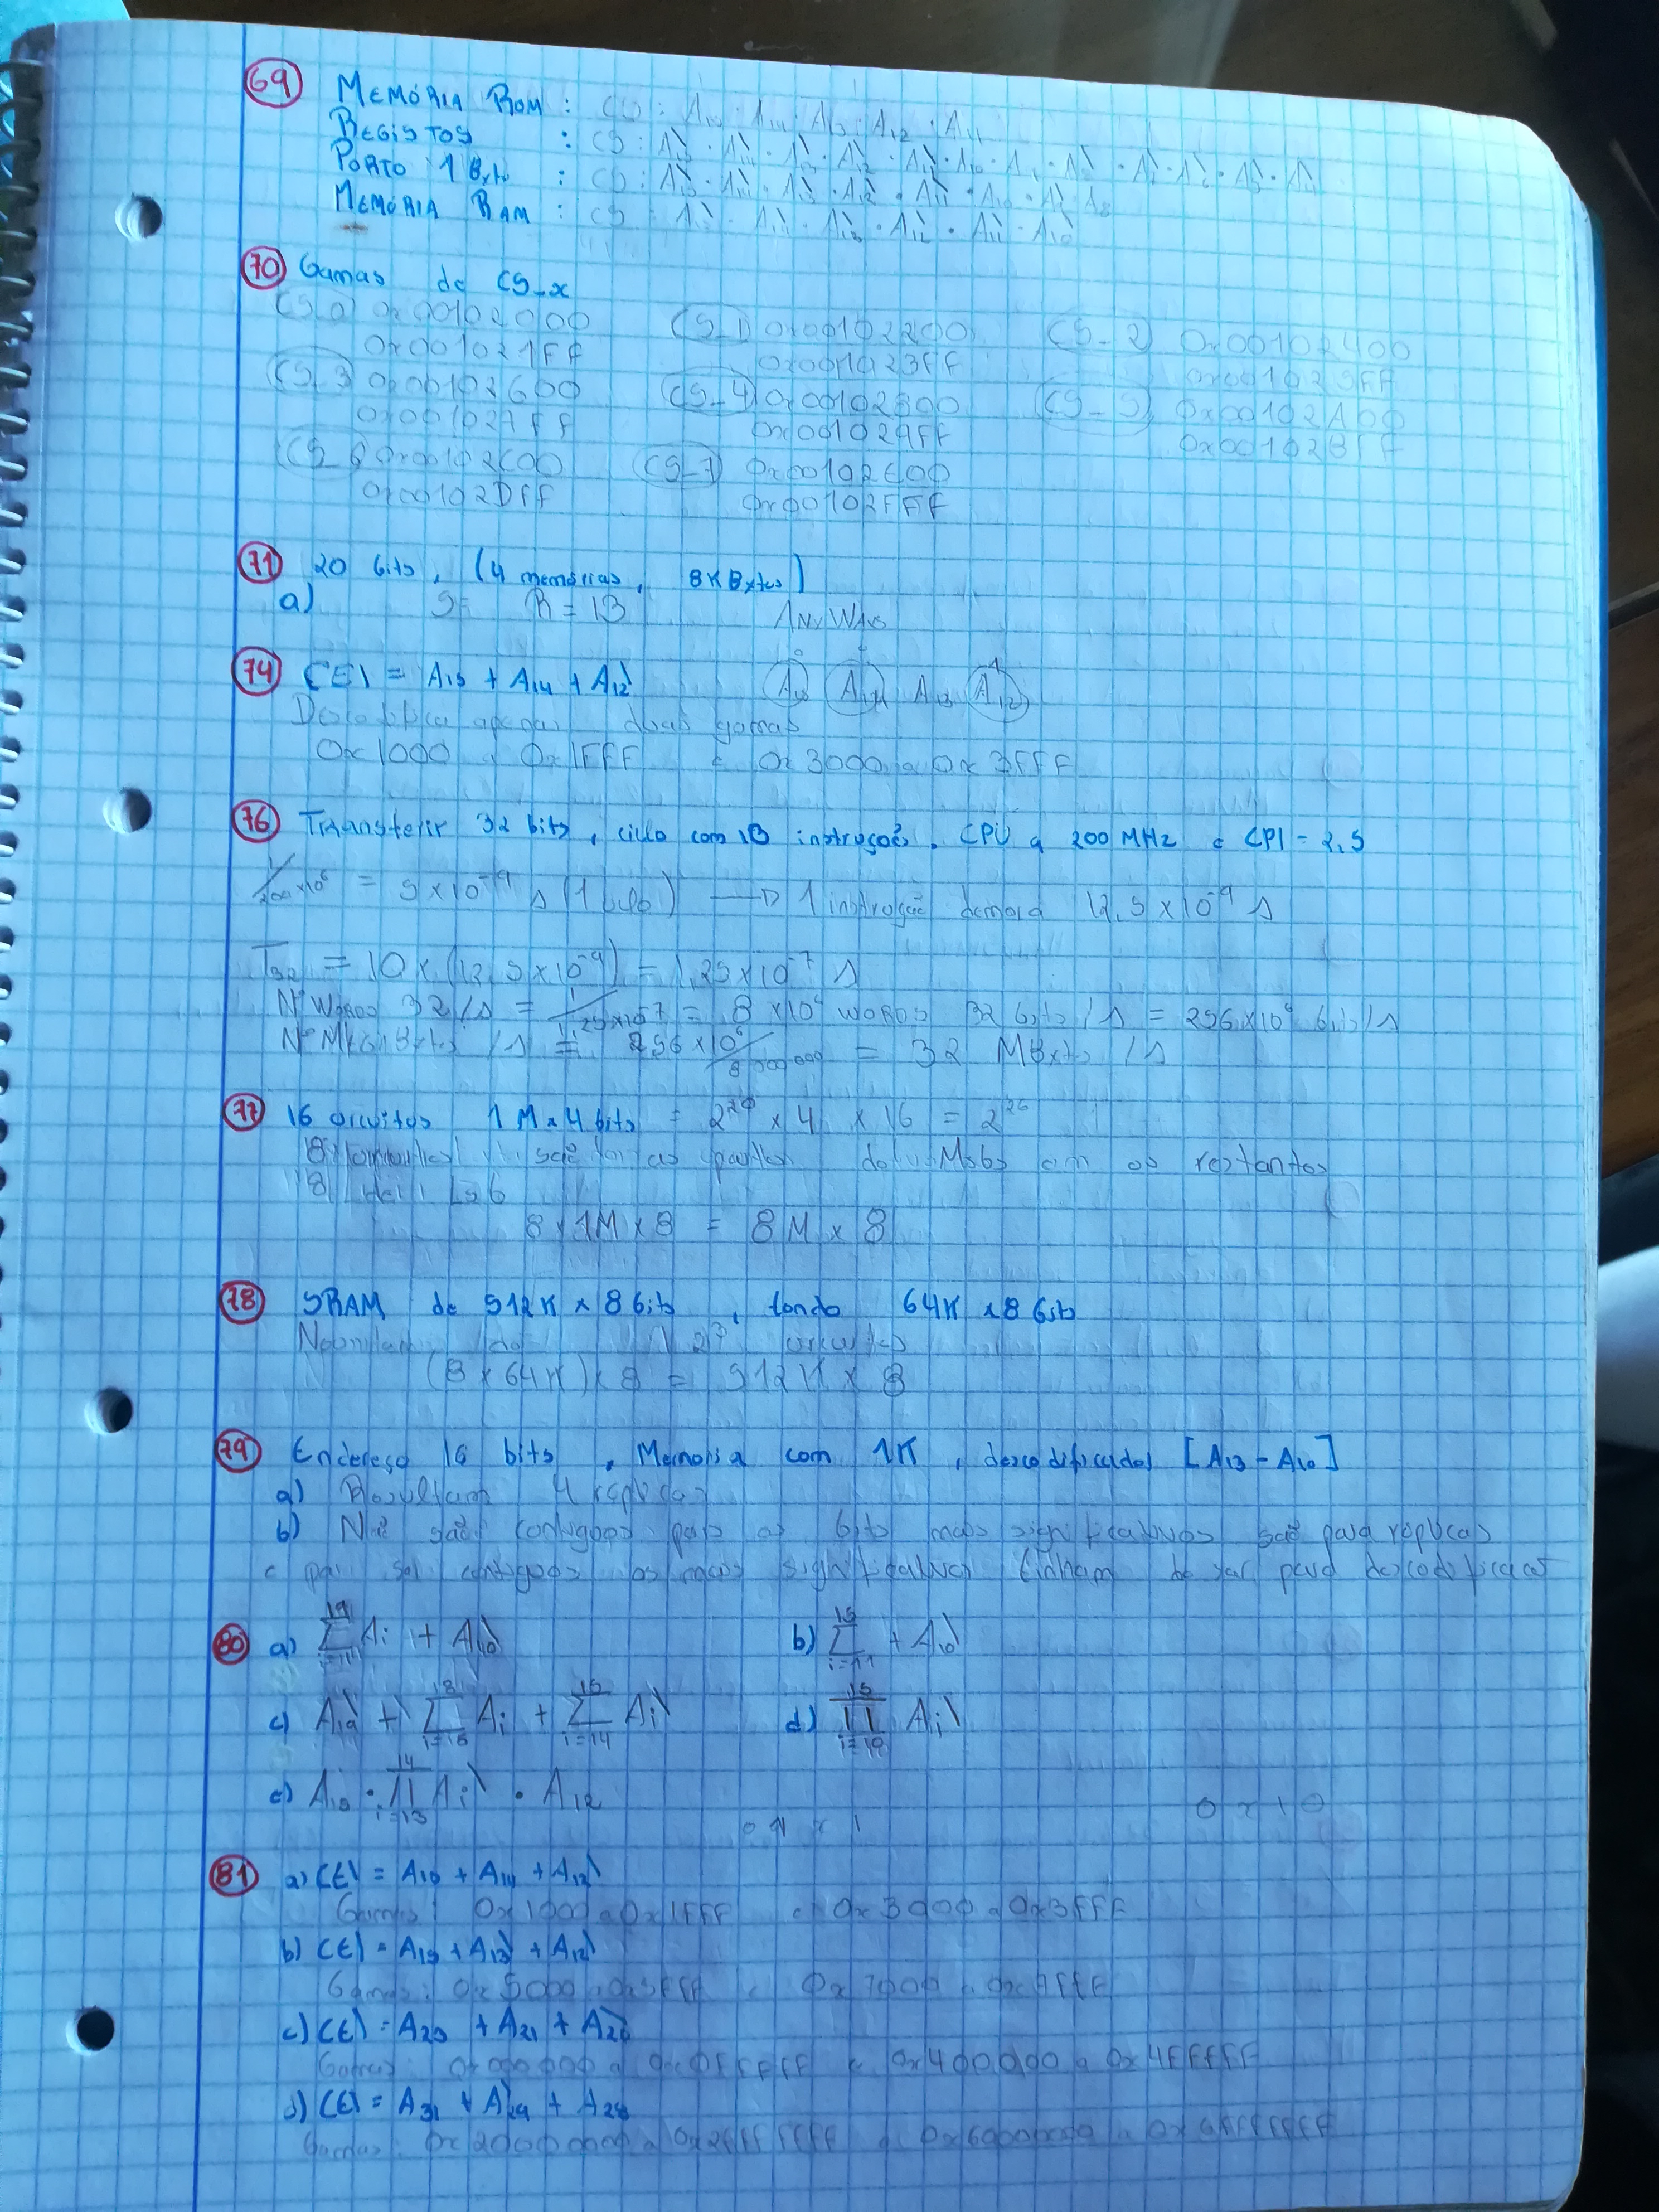 69 MEMÓRIA ROM : CS : A15 · A14 · A13 · A12 · A11
REGISTOS : CS :
PORTO 1 Byte : CS :
MEMÓRIA RAM : CS : A15\ · A14\ · A13\ · A12\ · A11\ · A10\
70 Gamas de CS_x
CS_0 0x00102000 CS_1 0x00102200 CS_2 0x00102400
0x001021FF 0x001023FF 0x001025FF
CS_3 0x00102600 CS_4 0x00102800 CS_5 0x00102A00
0x001027FF 0x001029FF 0x00102BFF
CS_6 0x00102C00 CS_7 0x00102E00
0x00102DFF 0x00102FFF
71 20 bits, (4 memórias, 8K Bytes)
a) S= R = 13 ANyWAys
74 CE\ = A15 + A14 + A12\ A15 A14 A13 A12
Descodifica apenas duas gamas
0x1000 a 0x1FFF e 0x3000 a 0x3FFF
76 Transferir 32 bits, ciclo com 10 instruções, CPU a 200 MHz e CPI = 2,5
1/200×10^6 = 5×10^-9 s (1 ciclo) → 1 instrução demora 12,5×10^-9 s
T32 = 10×(12,5×10^-9) = 1,25×10^-7 s
Nº WORDS 32/s = 1/1,25×10^-7 = 8×10^6 WORDS 32 bits/s = 256×10^6 bits/s
Nº MegaBytes/s = 256×10^6/8000000 = 32 MByte/s
77 16 circuitos 1M×4 bits = 2^20 × 4 × 16 = 2^26
8 são para os Msbs com os restantes
8 Lsb
8×1M×8 = 8M×8
78 SRAM de 512K × 8 bits, tendo 64K × 8 bits
2^3 circuitos
(8×64K)×8 = 512K×8
79 Endereço 16 bits, Memória com 1K, descodificados [A13 - A10]
a) Resultam 4 réplicas
b) Não são contíguos, pois os bits mais significativos são para réplicas
e para ser contíguos os mais significativos tinham de ser para descodificação
80 a) 19 Σ i=11 Ai + A10\ b) 15 Σ i=11 + A10\
c) A19\ + 18 Σ i=16 Ai + 15 Σ i=14 Ai\ d) 15 Π i=10 Ai\
e) A15 · 14 Π i=13 Ai\ · A12 0x10
81 a) CE\ = A15 + A14 + A12\
Gamas: 0x1000 a 0x1FFF e 0x3000 a 0x3FFF
b) CE\ = A15 + A13\ + A12\
Gamas: 0x5000 a 0x5FFF e 0x7000 a 0x7FFF
c) CE\ = A23 + A21 + A20
Gamas: 0x000000 a 0x0FFFFF e 0x400000 a 0x4FFFFF
d) CE\ = A31 + A29\ + A28
Gamas: 0x20000000 a 0x2FFFFFFF e 0x60000000 a 0x6FFFFFFF